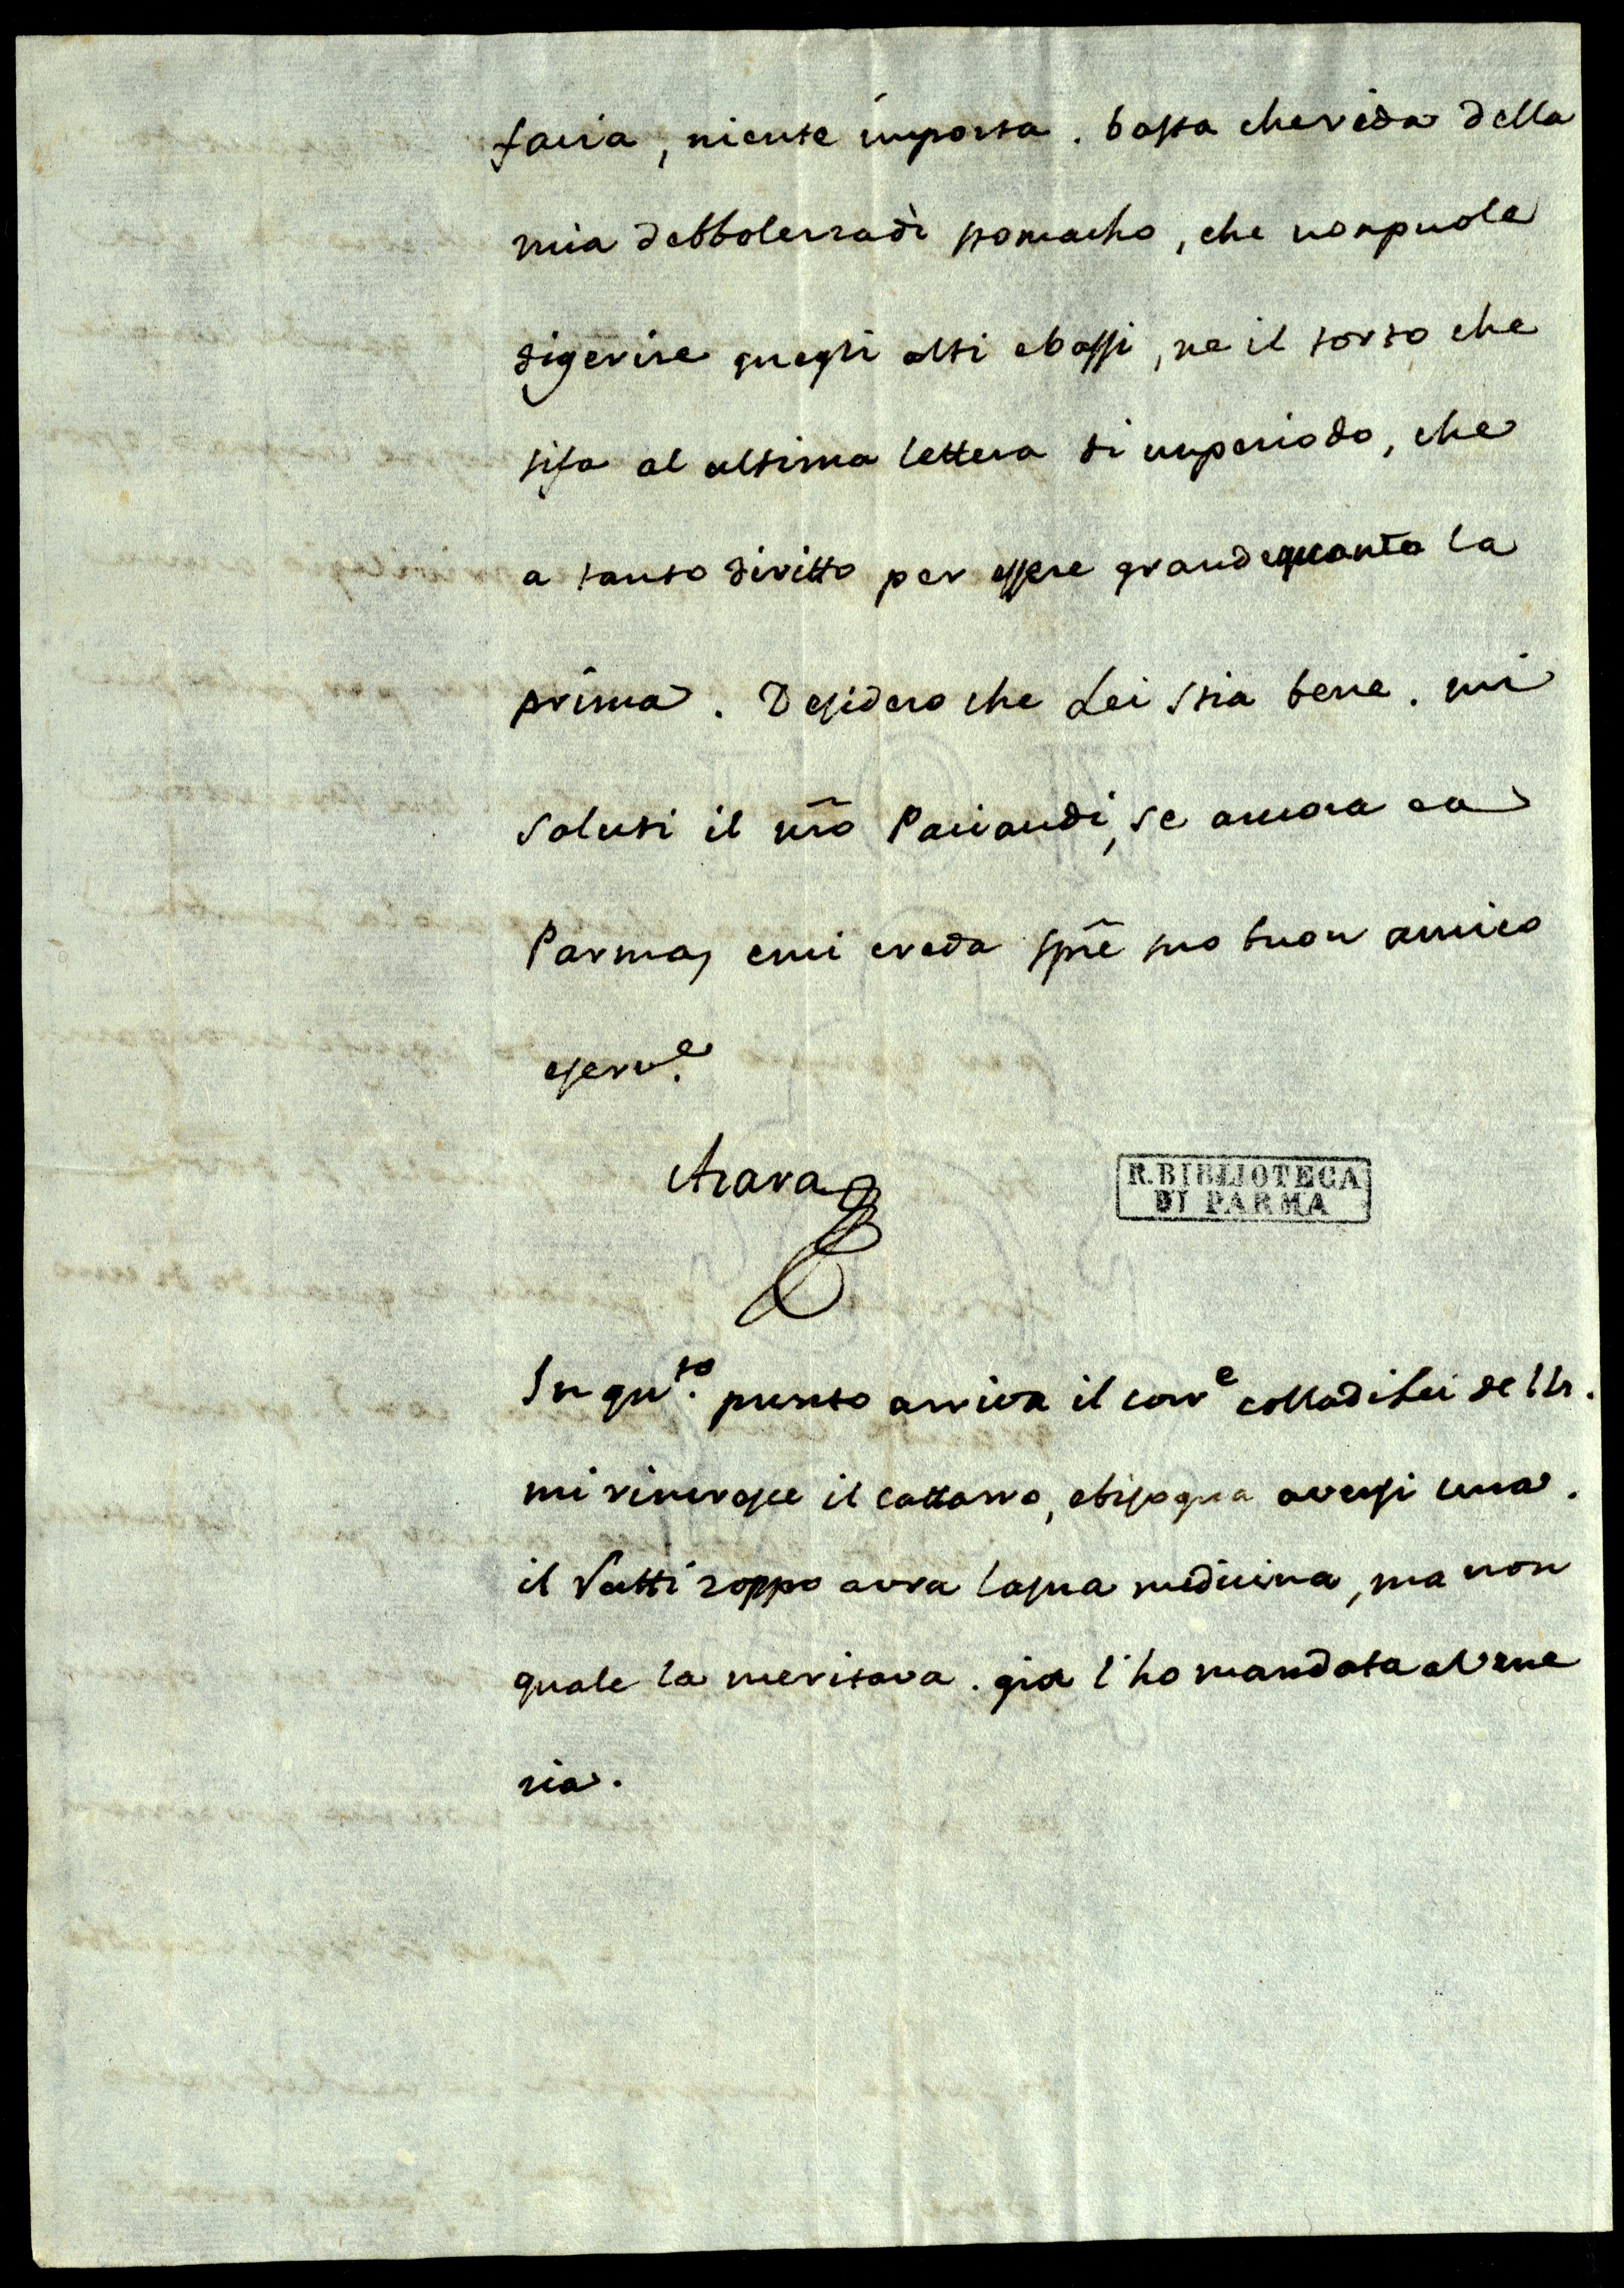 facia, niente importa. basta cherida della
mia debbolezzadì stomacho, che nonpuole
digerire quegli alti ebassi, ne il torto che
sifa al ultima lettera di unperiodo, che
a tanto diritto per essere grandequanto la
prima. Desidero che Lei stia bene. mi
saluti il nr̃o Paciaudi, se ancora ea
Parma, emi creda sp̃re suo buon amico
eserv.e
Azara
R. BIBLIOTECA
DI PARMA
In qu.to punto arriva il corre colladiLei dell 11.
mi rincresce il cattarro, ebisogna aversi cura.
il Vatti zoppo avra lasua medicina, ma non
quale la meritava. gia l'ho mandata aVene
zia.